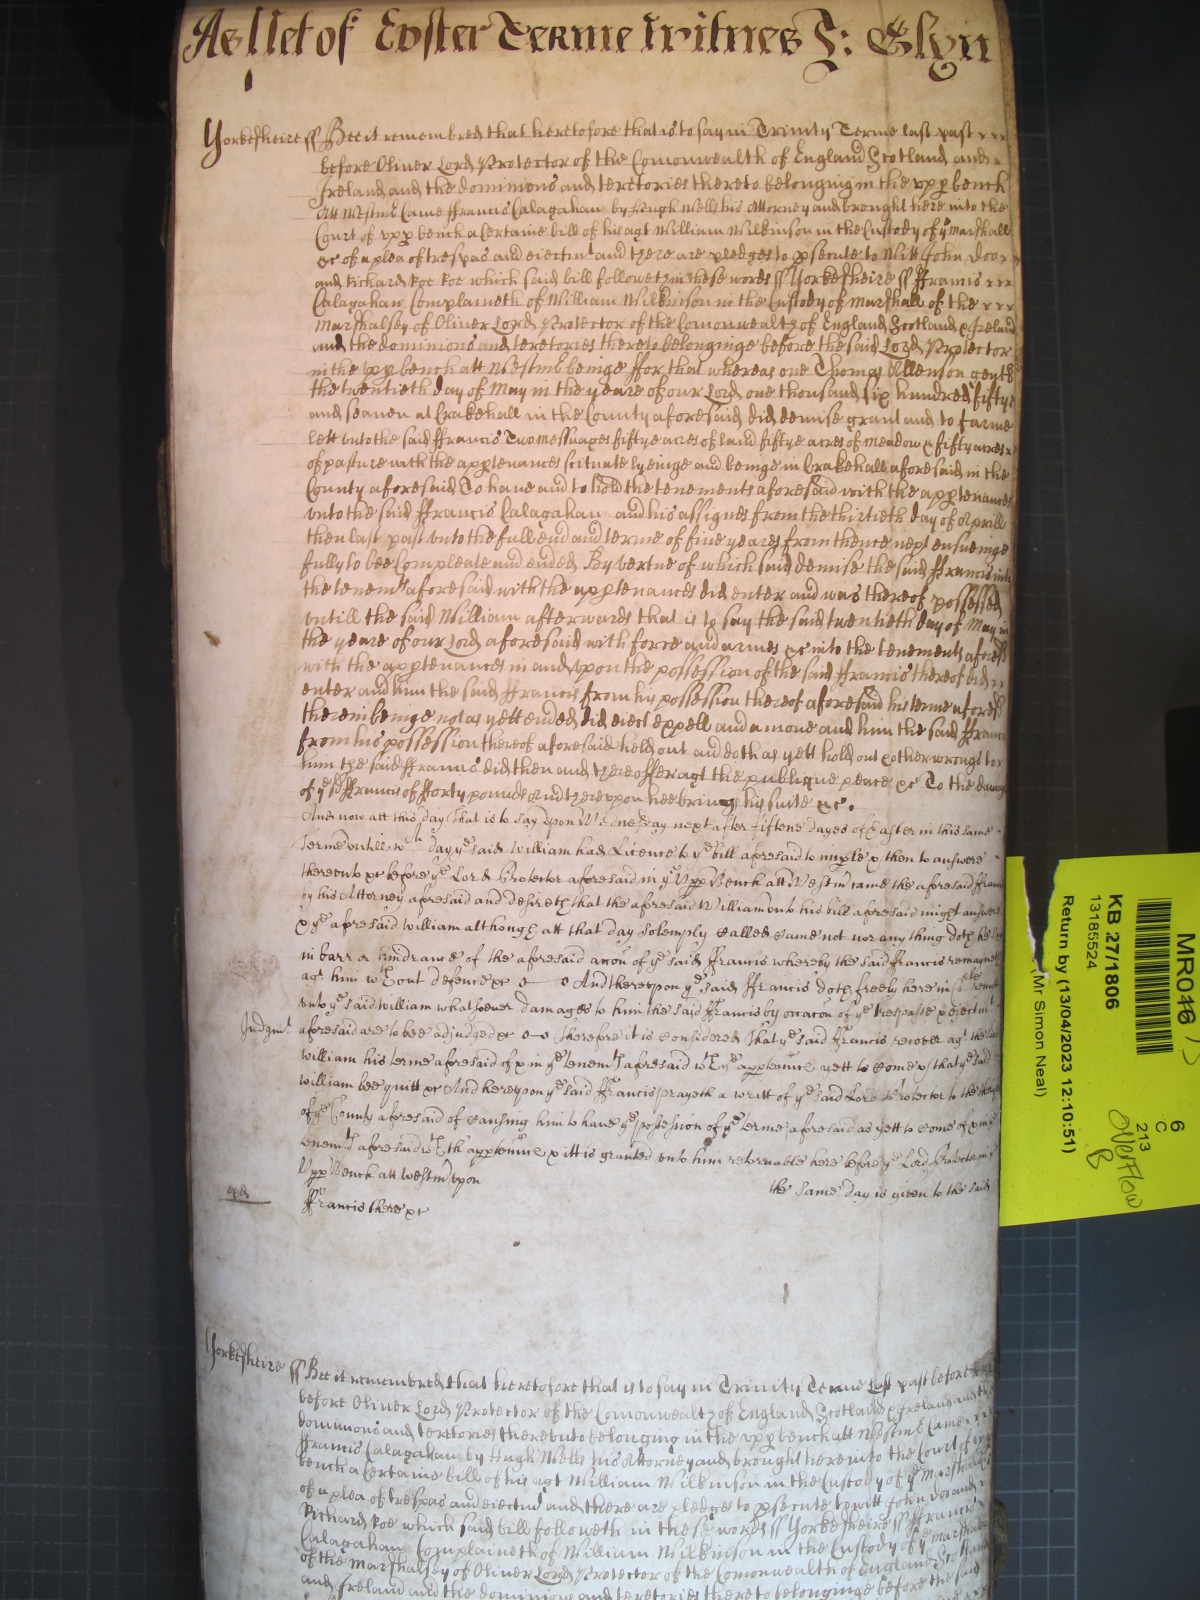 As yet of Easter Terme Witnes J: Glyn
Yorkesheire ss Bee it remembred that heretofore that is to say in Trinity Terme last past
before Oliver Lord Protector of the Comonwealth of England Scotland and
Ireland and the dominions and teretories thereto belonging in the upp bench
Att Westmc Came Ffrancis Calagahan by Hugh Wells his Attorney and brought here into the
Court of upp bench a Certaine bill of his agt William Wilkinson in the Custody of ye marshall
&c of a plea of trespas and eiectmt and there are pledges to psecute to Witt John Doo
and Richard Roe which said bill followeth in these words ss Yorkesheire ss Ffrancis
Calagahan Complaineth of William Wilkinson in the Custody of marshall of the
Marshalsey of Oliver Lord Protector of the Comonwealth of England Scotland & Ireland
and the dominions and teretories thereto belonginge before the said Lord Protector
in the upp bench att Westmc beinge ffor that whereas one Thomas Allenson gent
the twentieth day of May in the yeare of our Lord one thousand six hundred fiftye
and seaven at Crakehall in the County aforesaid did demise grant and to farme
lett unto the said Ffrancis Two messuages fiftye acres of land fiftye acres of meadow & fifty acres
of pasture with the apptenances scituate lyeinge and beinge in Crakehall aforesaid in the
County aforesaid To have and to hold the tenements aforesaid with the apptenances
unto the said Ffrancis Calagahan and his assignes from the thirtieth day of Aprill
then last past unto the full end and terme of five yeares from thence next ensueinge
fully to bee Compleate and ended By vertue of which said demise the said Ffrancis into
the tenemts aforesaid with the apptenances did enter and was thereof possessed
untill the said William afterwards that is to say the said twentieth day of May in
the yeare of our Lord aforesaid with force and armes &c into the tenements aforesd
with the apptenances in and upon the possession of the said Ffrancis thereof did
enter and him the said Ffrancis from his possession thereof aforesaid his terme aforesd
therein beinge not as yett ended did eiect expell and amove and him the said Ffrancis
from his possession thereof aforesaid held out and doth as yett hold out & other wrongs to
him the said Ffrancis did then and there offer agt the publique peace &c To the damag
of ye sd Ffrancis of fforty pounds And thereupon hee brings his suite &c.
And now att this day That is to say upon Wednesday next after fiftene dayes of Easter in this same
Terme untill wch day ye said William had Licence to ye bill aforesaid to imple & then to answere
thereunto &c before ye Lord Protector aforesaid in ye Upp Bench att Westmr came the aforesaid Ffrancis
by his Attorney aforesaid and desireth that the aforesaid William unto his bill aforesaid might answere
& ye aforesaid William although att that day solemply called came not nor any thing doth he say
in barr or hindrance of the aforesaid accon of ye said Ffrancis whereby the said Ffrancis remayneth
agt him wthout defence &c And thereupon ye said Ffrancis doth freely here in remitt
unto ye said William whatsoever damages to him the said Ffrancis by occacon of ye trespasse & eiectmt
Judgmt aforesaid are to bee adjudged &c Therefore it is considered That ye said Ffrancis recover agt the said
William his terme aforesaid of & in ye tenemts aforesaid wth ye apptennce yett to come & that ye said
William bee quitt &c And hereupon ye said Ffrancis prayeth a writt of ye said Lord Protector to the
of ye County aforesaid of causing him to have ye possession of ye terme aforesaid as yett to come of & in ye
tenemts aforesaid wth th apptennce & itt is granted unto him returnable here before ye Lord Protector in ye
Upp Bench att Westmr upon the same day is given to the said
Ffrancis there &c
Yorkesheire ss Bee it remembred that heretofore that is to say in Trinity Terme Last past before
before Oliver Lord Protector of the Comonwealth of England Scotland & Ireland and the
dominons and teretories thereunto belonging in the upp bench att Westmc Came
Ffrancis Calagahan by Hugh Wells his Attorney and brought here into the Court of upp
bench a Certaine bill of his agt William Wilkinson in the Custody of ye marshall
of a plea of trespas and eiectmt and there are pledges to psecute to witt John Doo and
Richard Roe which said bill followeth in these words ss Yorkesheire ss Ffrancis
Calagahan Complaineth of William Wilkinson in the Custody of ye marshall
of the Marshalsey of Oliver Lord Protector of the Comonwealth of England Scotland
and Ireland and the dominions and teretories thereto belonginge before the said
MR046
KB 27/1806
13185524
Return by (13/04/2023 12:10:51)
(Mr Simon Neal)
6
C
213
Overflow
B